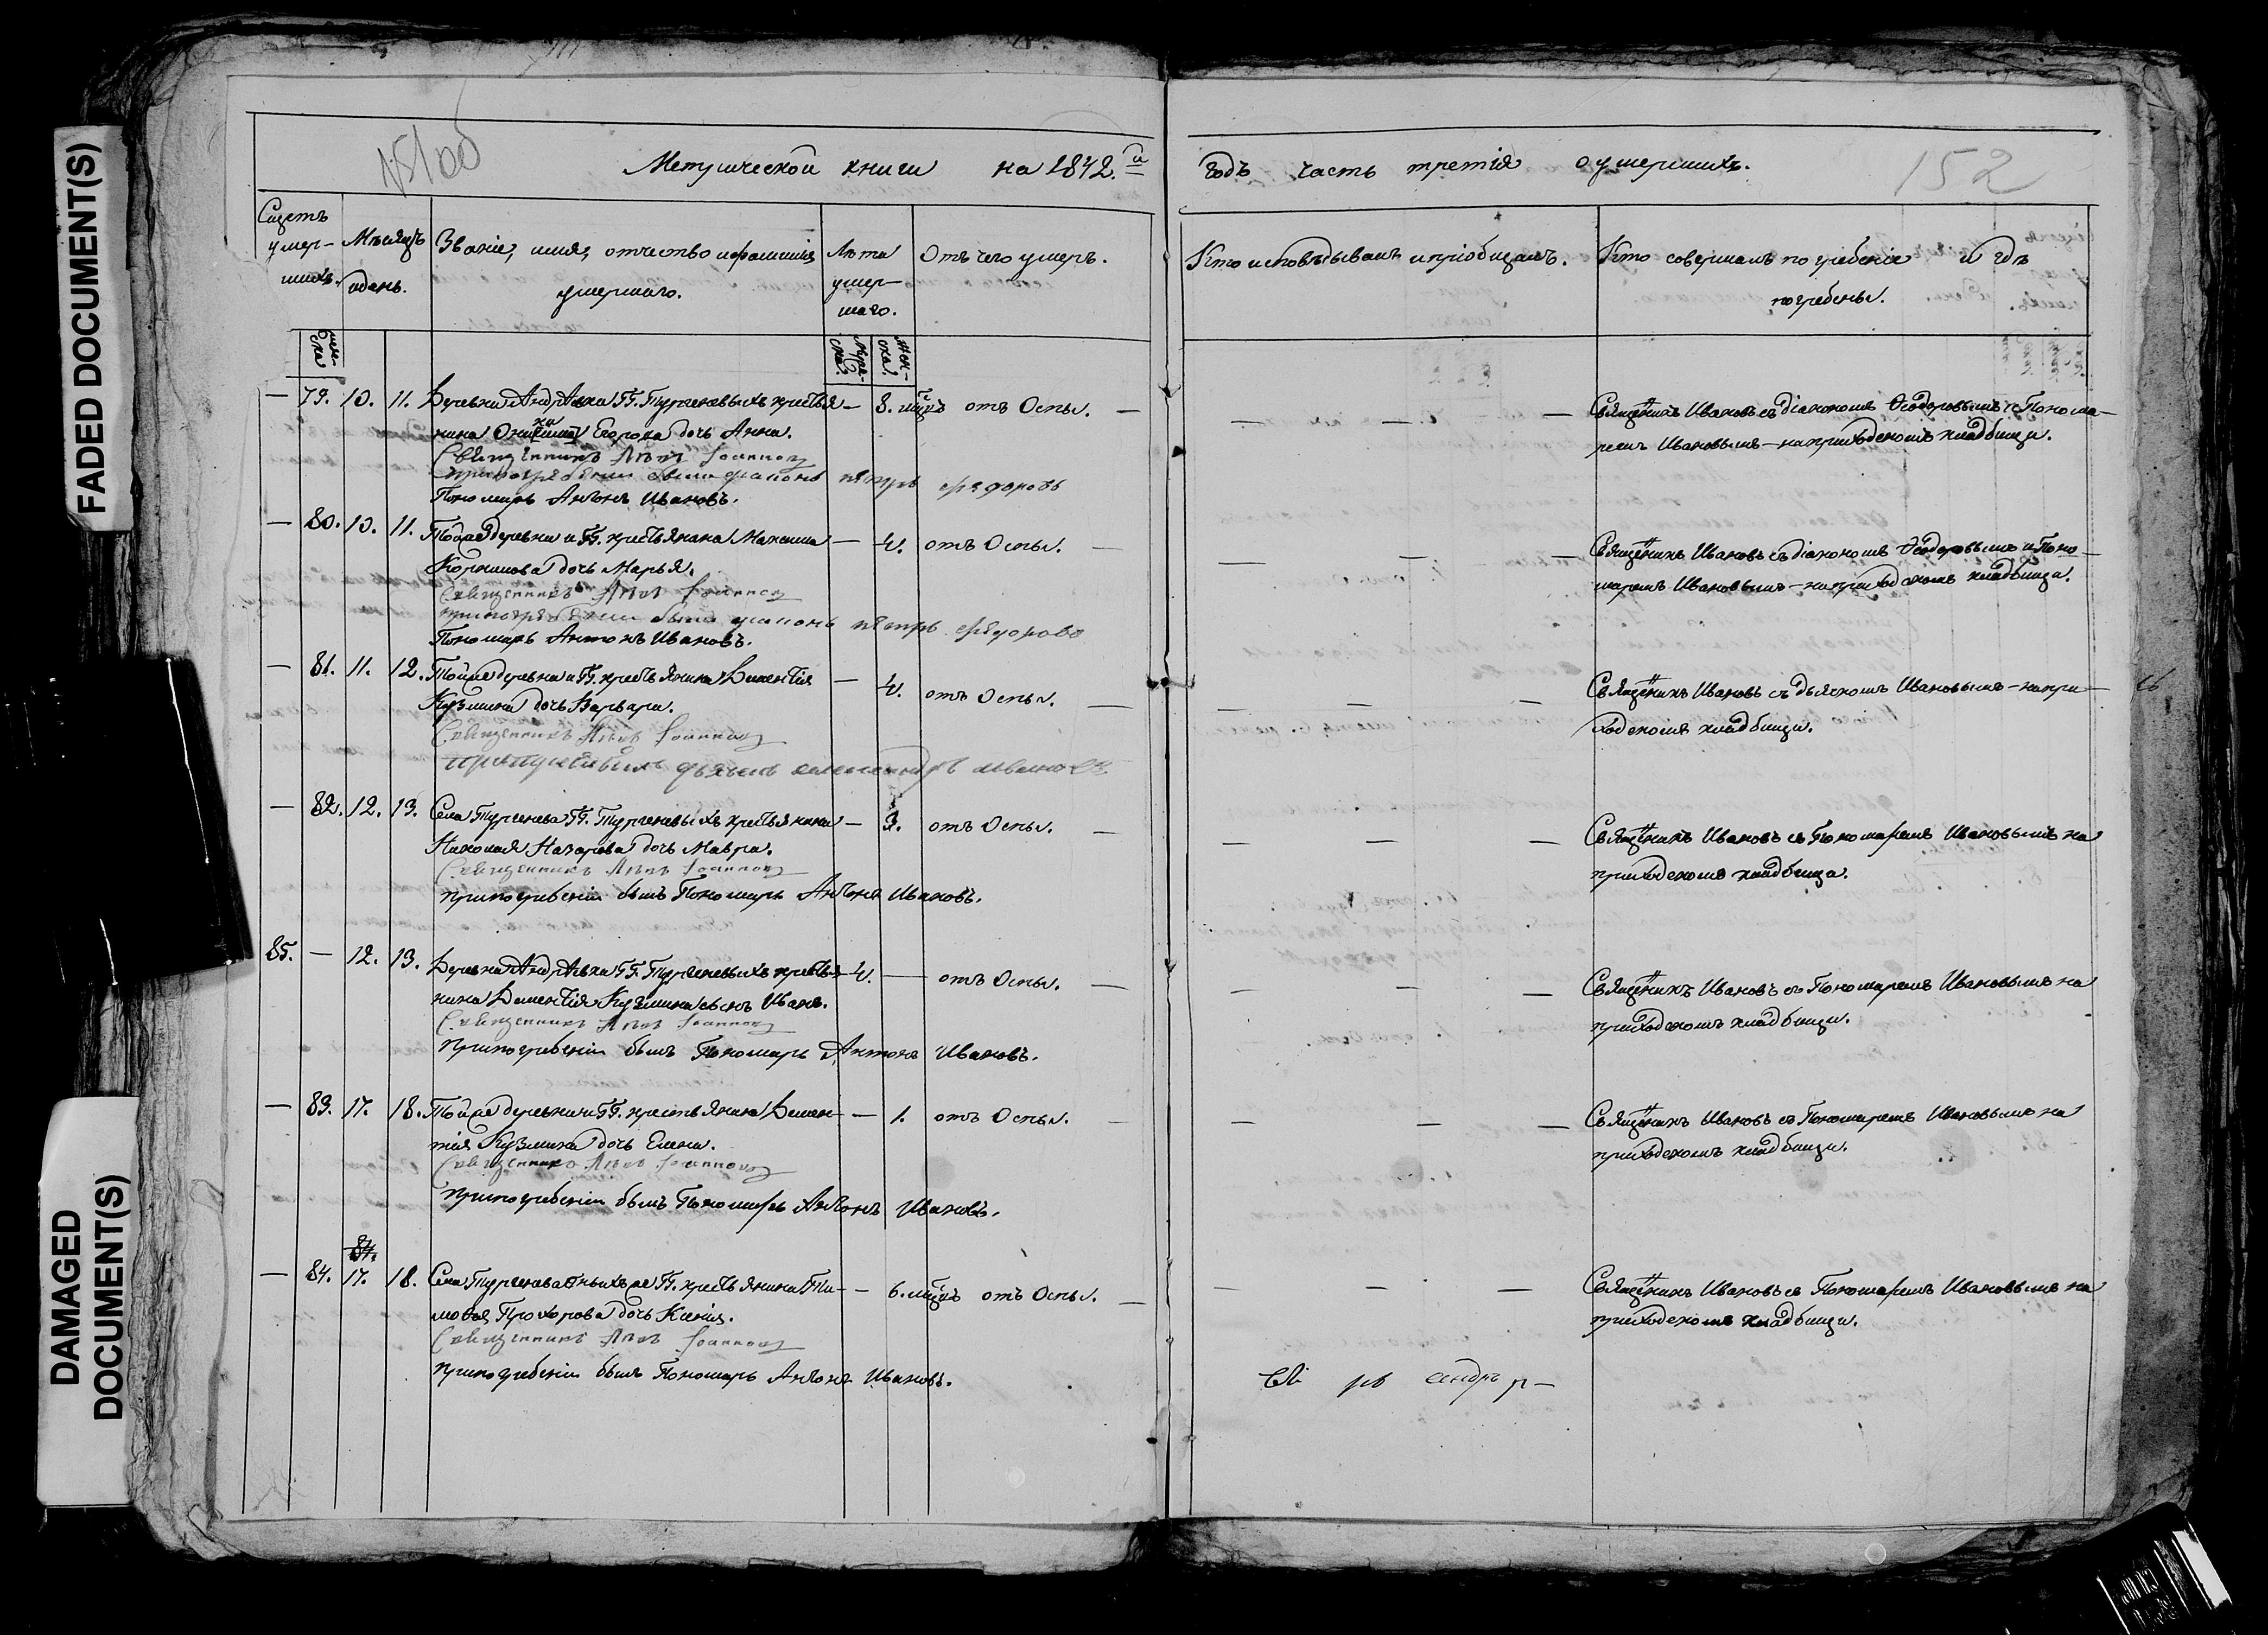 FADED DOCUMENT(S)
DAMAGED
DOCUMENT(S)
Метрической книги на 1842.й
годъ часть третія о умершихъ.
152
Счетъ умер-шихъ.
Мѣсяцъ и день.
Званіе, имя, отчество и фамилія умершаго.
Лѣта умер-шаго.
Отъ чего умеръ.
Кто исповѣдывалъ и пріобщалъ.
Кто совершалъ погребеніе и гдѣ погребены.
— 79. 10. 11. Деревни Андрѣевки ГГ. Тургеневыхъ крестья — 8. мцовъ отъ Оспы. —
нина Егорова дочь Анна.
Священникъ Левъ Іоанновъ
при погребении былъ диаконъ петръ федоровъ
Пономарь Антонъ Ивановъ.
— — — Священникъ Ивановъ съ діакономъ Ѳеодоровымъ и Понома-
ремъ Ивановымъ — на приходскомъ кладбищи.
— 80. 10. 11. Тойже деревни и ГГ. крестьянина Максима — 4. отъ Оспы. —
Корнилова дочь Марья.
Священникъ Левъ Іоанновъ
при погребении былъ диаконъ петръ федоровъ
Пономарь Антонъ Ивановъ.
— — — Священникъ Ивановъ съ діакономъ Ѳеодоровымъ и Поно-
маремъ Ивановымъ — на приходскомъ кладбищи.
— 81. 11. 12. Тойже деревни и ГГ. крестьянина Дементія — 4. отъ Оспы. —
Кузмина дочь Варвара.
Священникъ Левъ Іоанновъ
дьячекъ александръ ивановъ
— — — Священникъ Ивановъ съ дьячкомъ Ивановымъ — на при-
ходскомъ кладбищи.
— 82. 12. 13. Села Тургенева ГГ. Тургеневыхъ крестьянина — 3. отъ Оспы. —
Николая Назарова дочь Мавра.
Священникъ Левъ Іоанновъ
при погребеніи былъ Пономарь Антонъ Ивановъ.
— — — Священникъ Ивановъ съ Пономаремъ Ивановымъ на
приходскомъ кладбищи.
85. — 12. 13. Деревни Андрѣевки ГГ. Тургеневыхъ крестья- 4. — отъ Оспы. —
нина Дементія Кузмина сынъ Иванъ.
Священникъ Левъ Іоанновъ
при погребеніи былъ Пономарь Антонъ Ивановъ.
— — — Священникъ Ивановъ съ Пономаремъ Ивановымъ на
приходскомъ кладбищи.
— 83. 17. 18. Тойже деревни и ГГ. крестьянина Демен- — 1. отъ Оспы. —
тія Кузмина дочь Елена.
Священникъ Левъ Іоанновъ
при погребеніи былъ Пономарь Антонъ Ивановъ.
— — — Священникъ Ивановъ съ Пономаремъ Ивановымъ на
приходскомъ кладбищи.
84.
— 84. 17. 18. Села Тургенева ГГ. крестьянина Ти- — 6. мцовъ отъ Оспы. —
мофея Прохорова дочь Ксенія.
Священникъ Левъ Іоанновъ
при погребеніи былъ Пономарь Антонъ Ивановъ.
— — — Священникъ Ивановъ съ Пономаремъ Ивановымъ на
приходскомъ кладбищи.